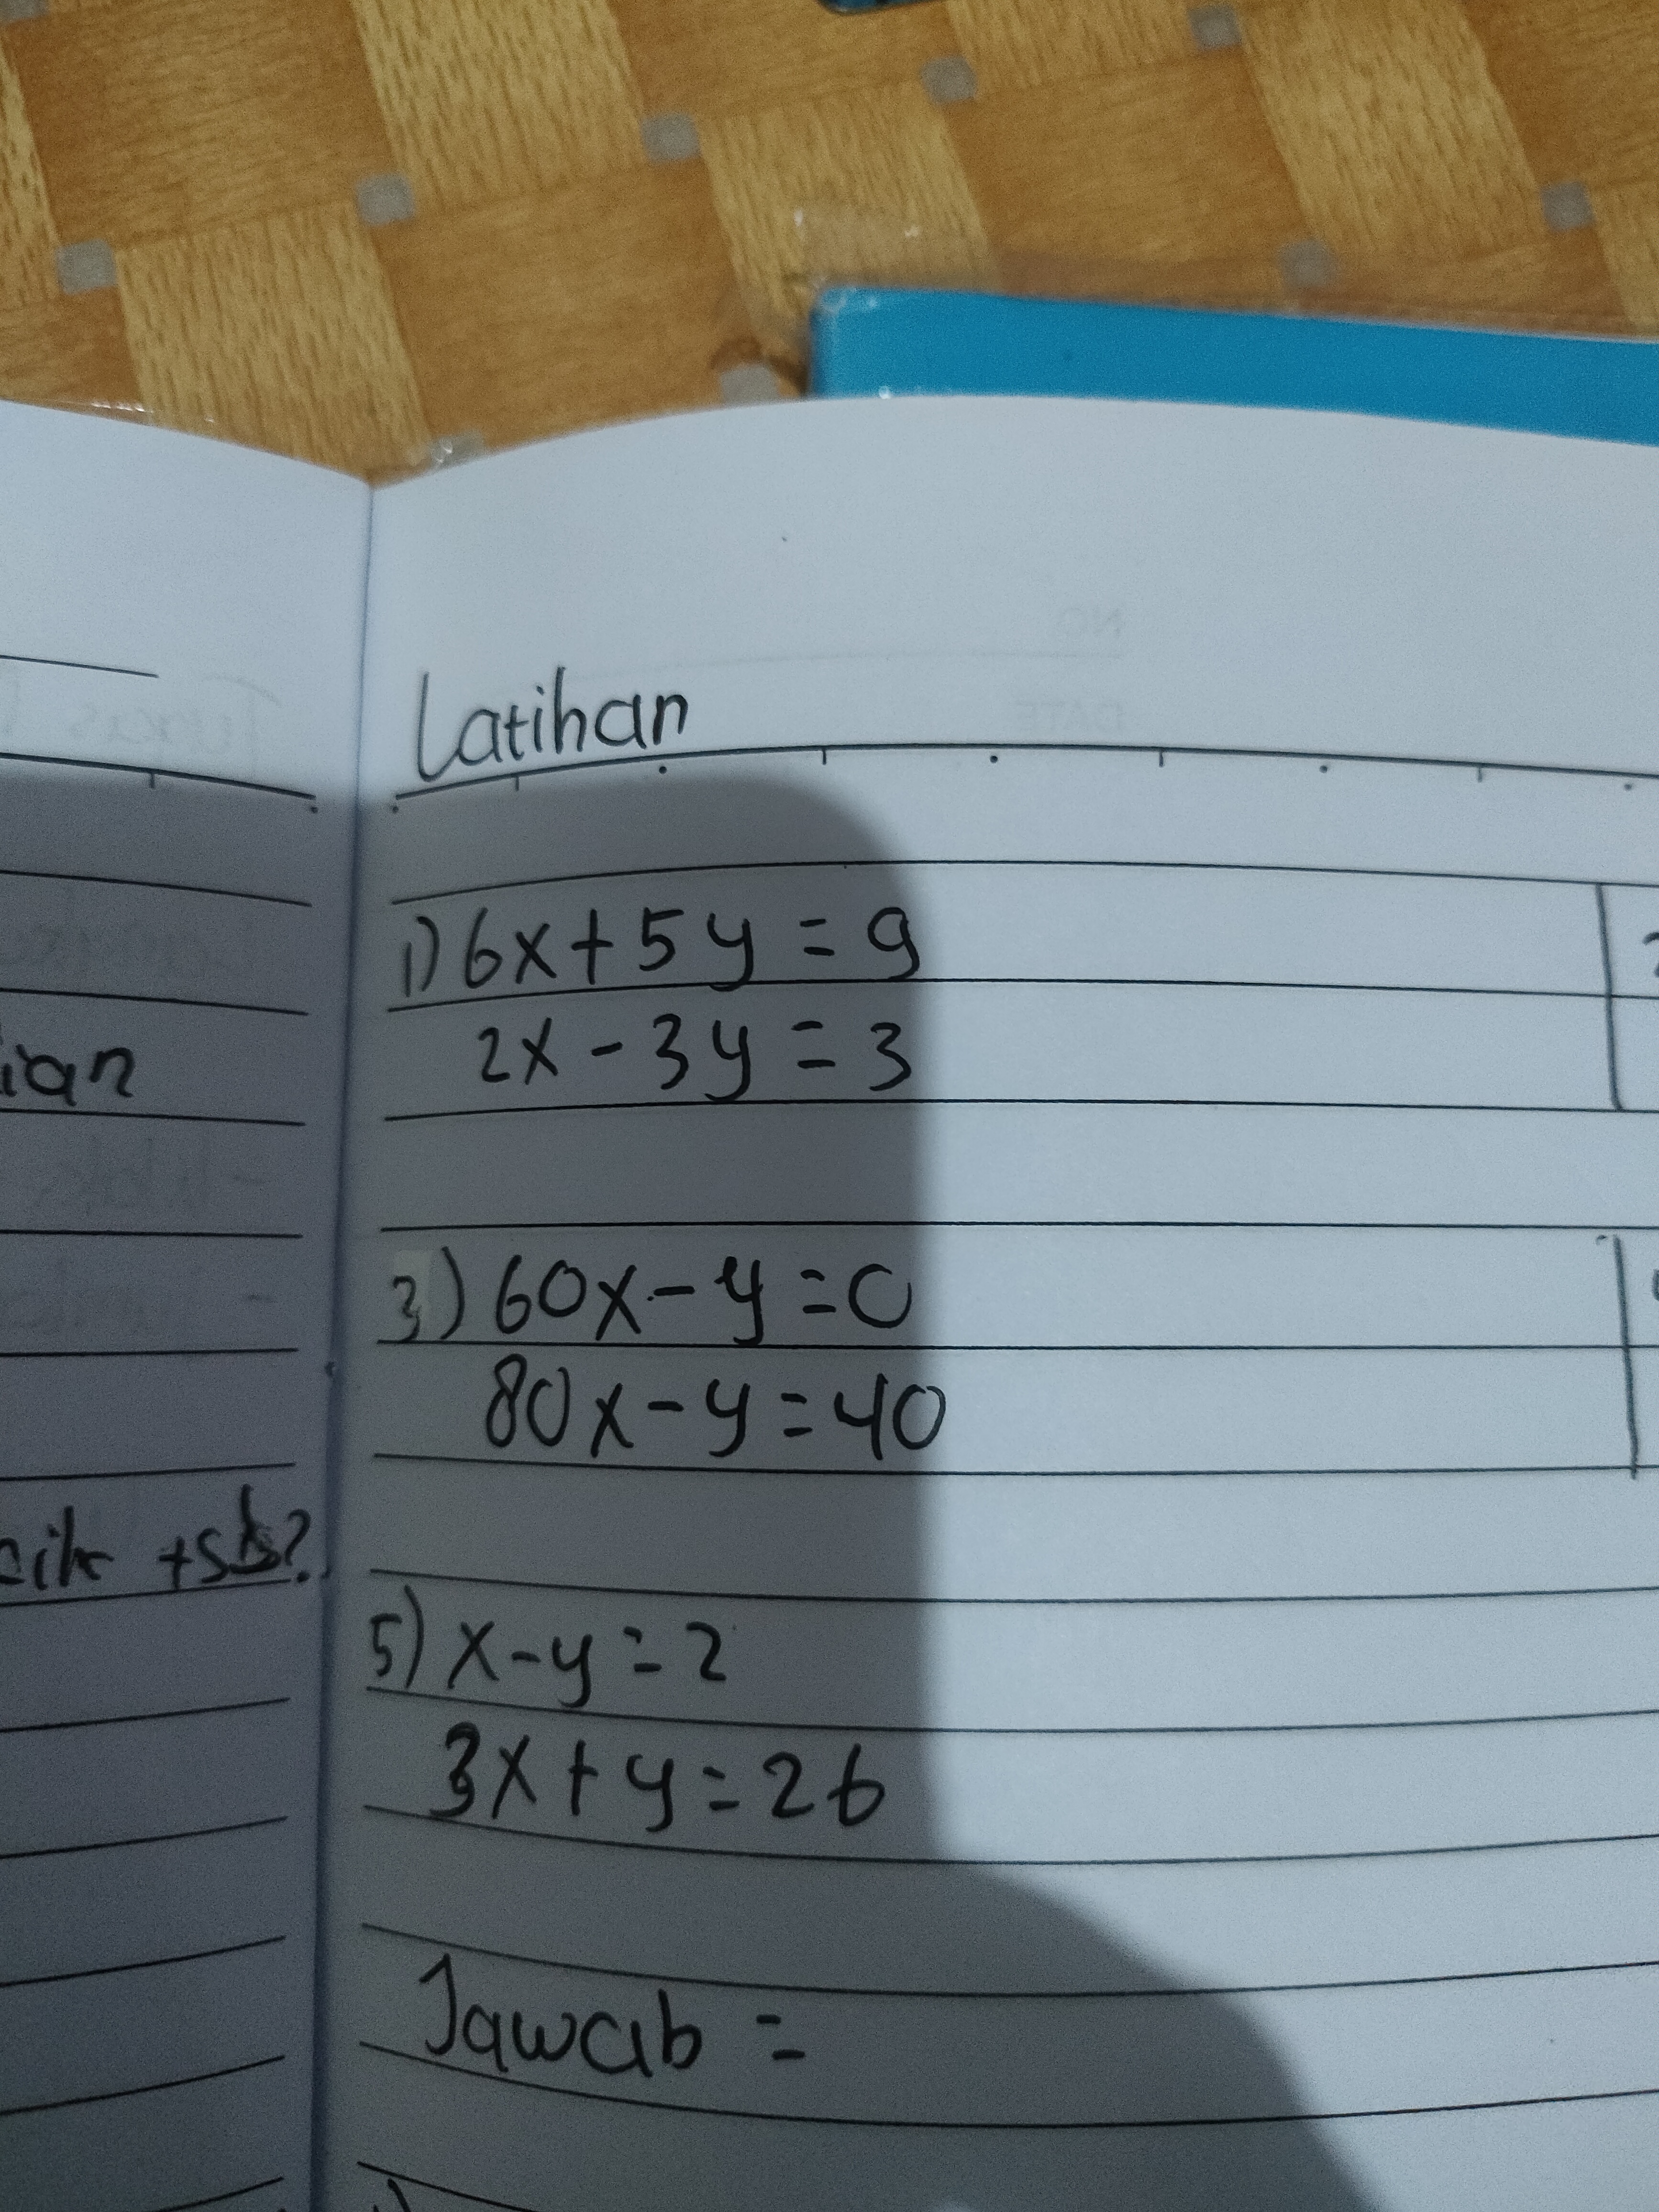 Latihan
1) 6x + 5y = 9
2x - 3y = 3
3) 60x - y = 0
80x - y = 40
5) x - y = 2
3x + y = 26
Jawab =
ian
+sb?
NO
DATE